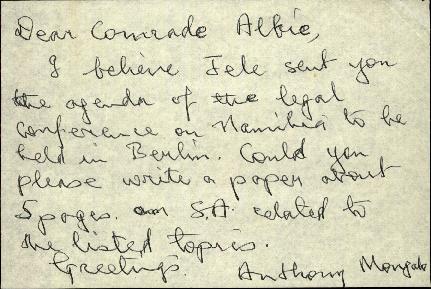 Dear Comrade Albie,
I believe Jele sent you
the agenda of the legal
conference on Namibia to be
held in Berlin. Could you
please write a paper about
5 pages. on S.A. related to
the listed topics.
Greetings.
Anthony Mongalo